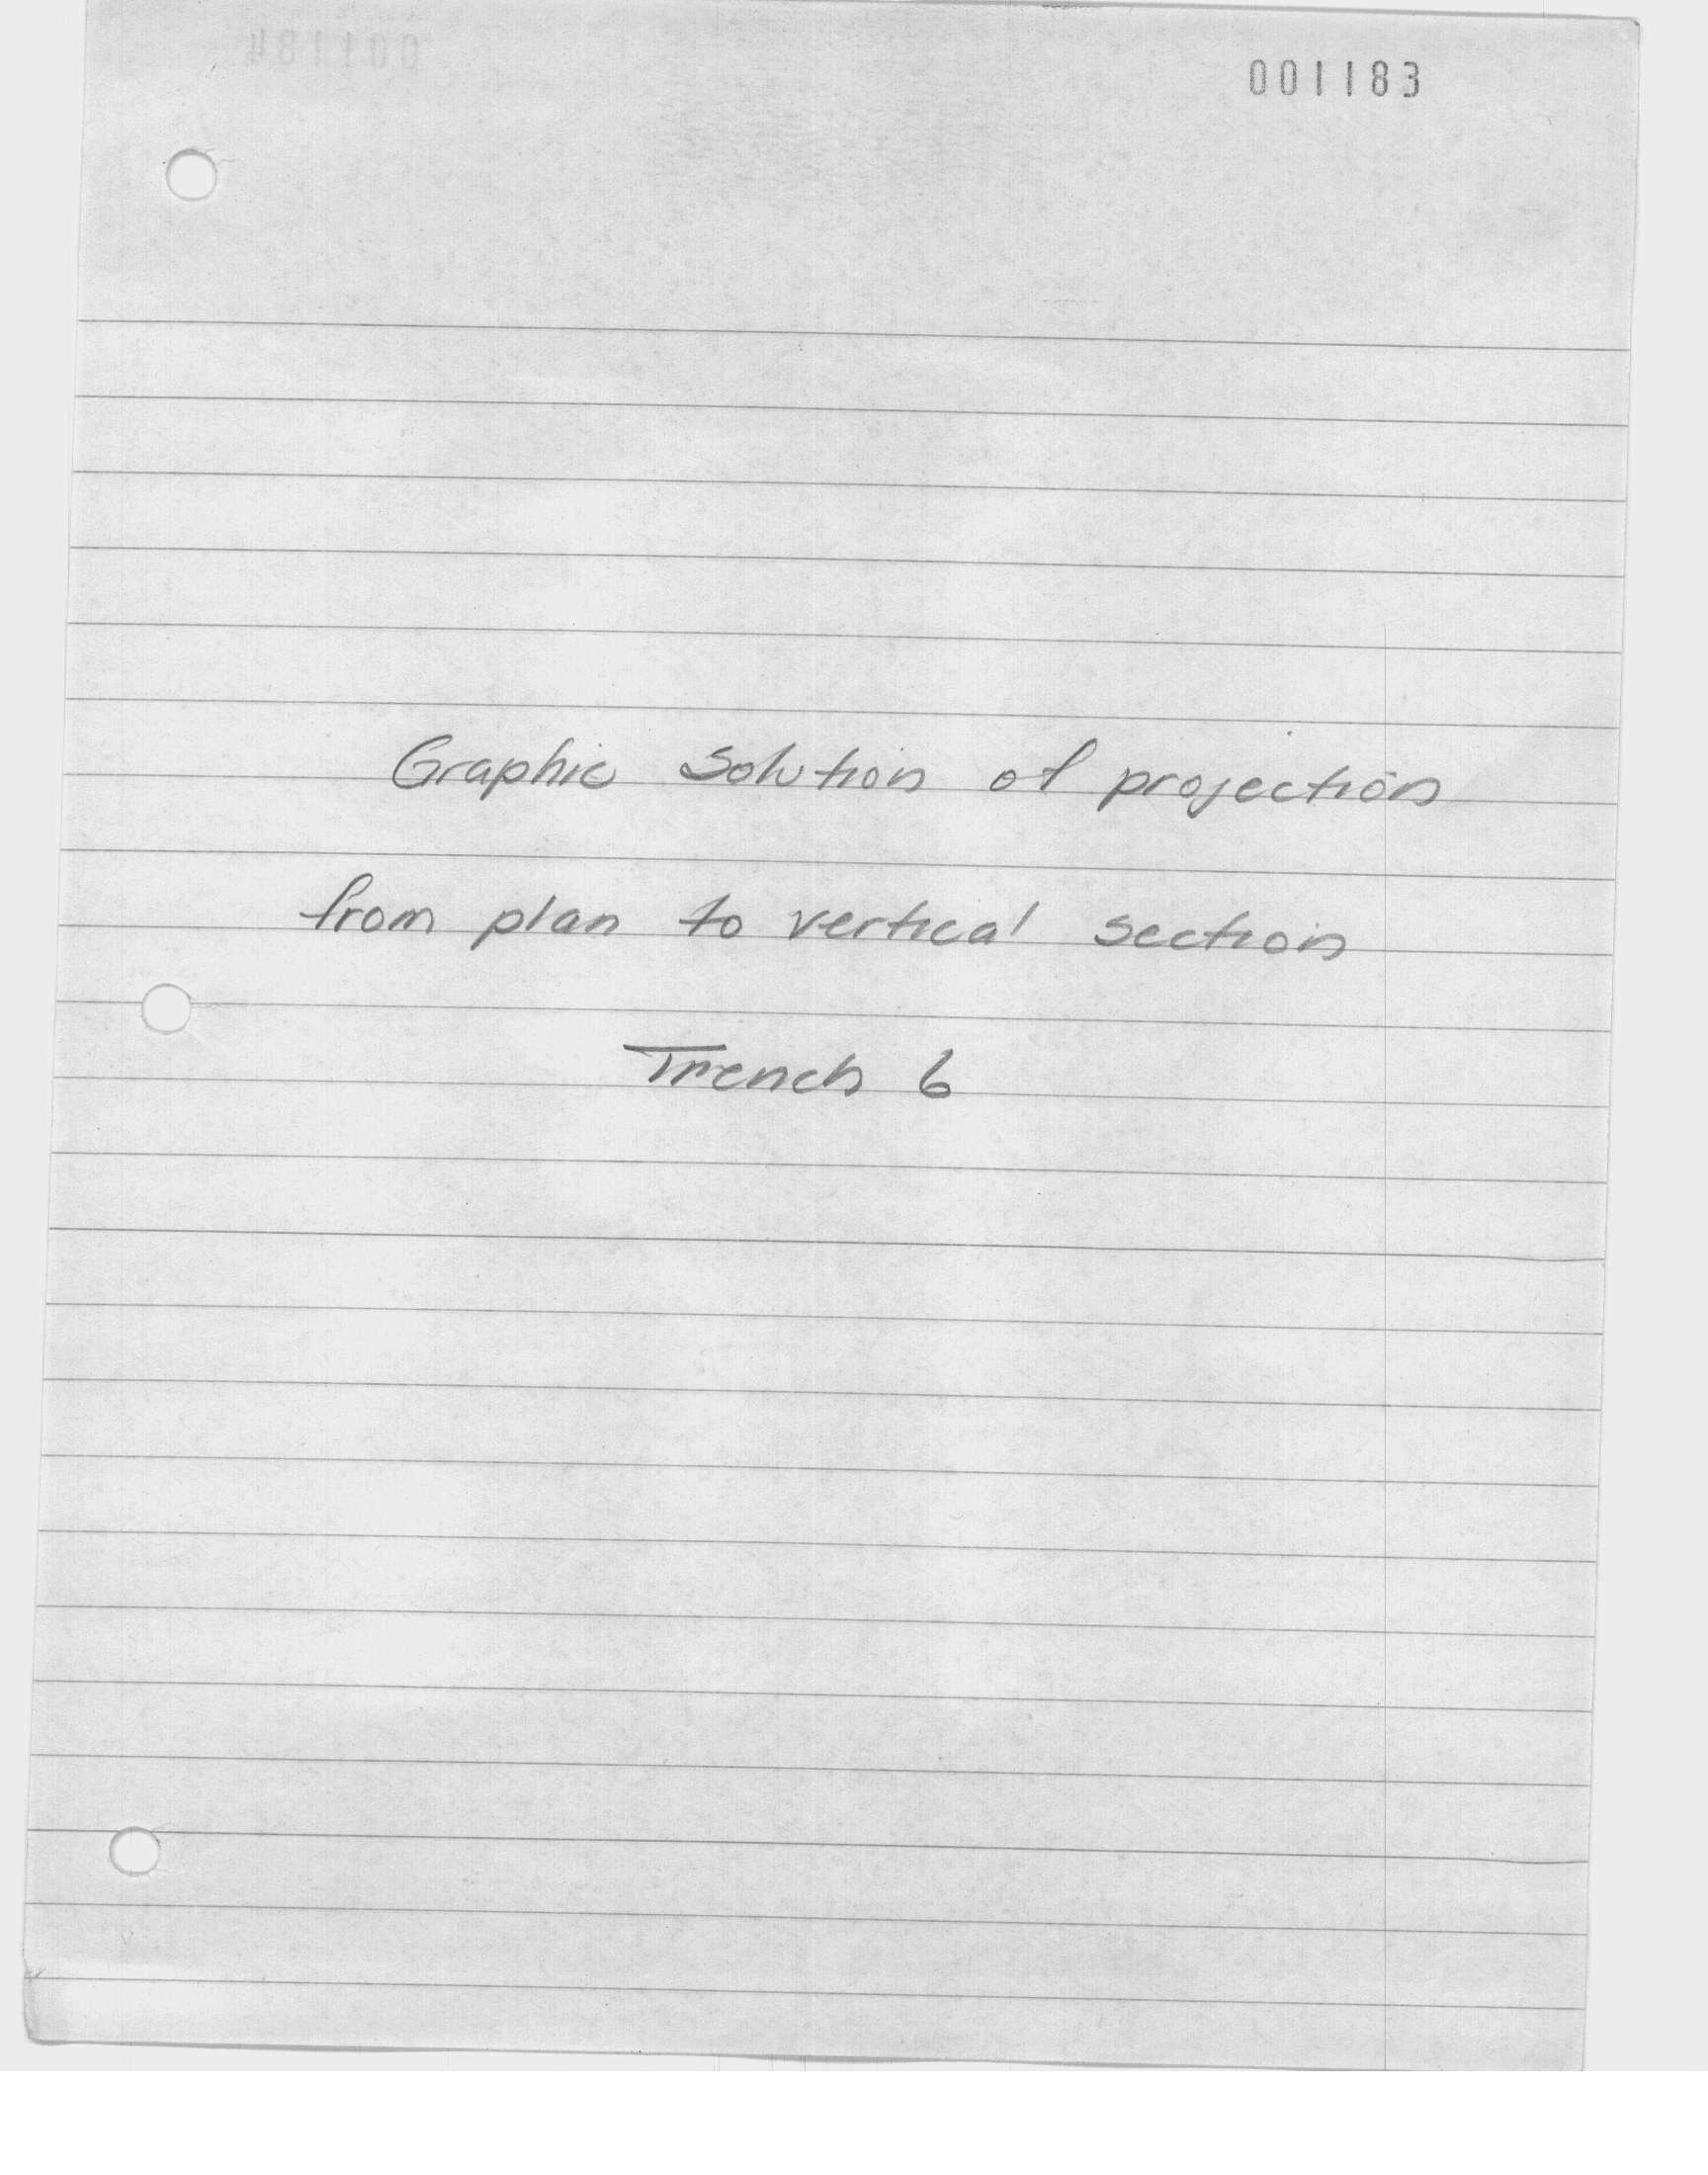 001183
Graphic Solution of projection
from plan to vertical section
Trench 6